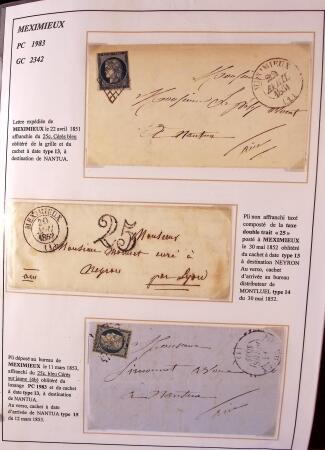 MEXIMIEUX
PC 1983
GC 2342
Lettre expédiée de
MEXIMIEUX le 22 avril 1851
affranchie du 25c. Cérès bleu
oblitéré de la grille et du
cachet à date type 13, à
destination de NANTUA.
MEXIMIEUX
1851
(1)
Monsieur
Monsieur
à Nantua
Pli non affranchi taxé
composté de la taxe
double trait « 25 »
posté à MEXIMIEUX
le 30 mai 1852 oblitéré
du cachet à date type 13
à destination NEYRON
Au verso, cachet
d'arrivée au bureau
distributeur de
MONTLUEL type 14
du 30 mai 1852.
MEXIMIEUX
30
1852
25
Monsieur
Monsieur
curé à
Neyron
par Lyon
Pli déposé au bureau de
MEXIMIEUX le 11 mars 1853,
affranchi du 25c. bleu Cérès
oblitéré du
losange PC 1983 et du cachet
à date type 13, à destination de
NANTUA.
Au verso, cachet à date
d'arrivée de NANTUA type 15
du 12 mars 1853.
Monsieur
à Nantua